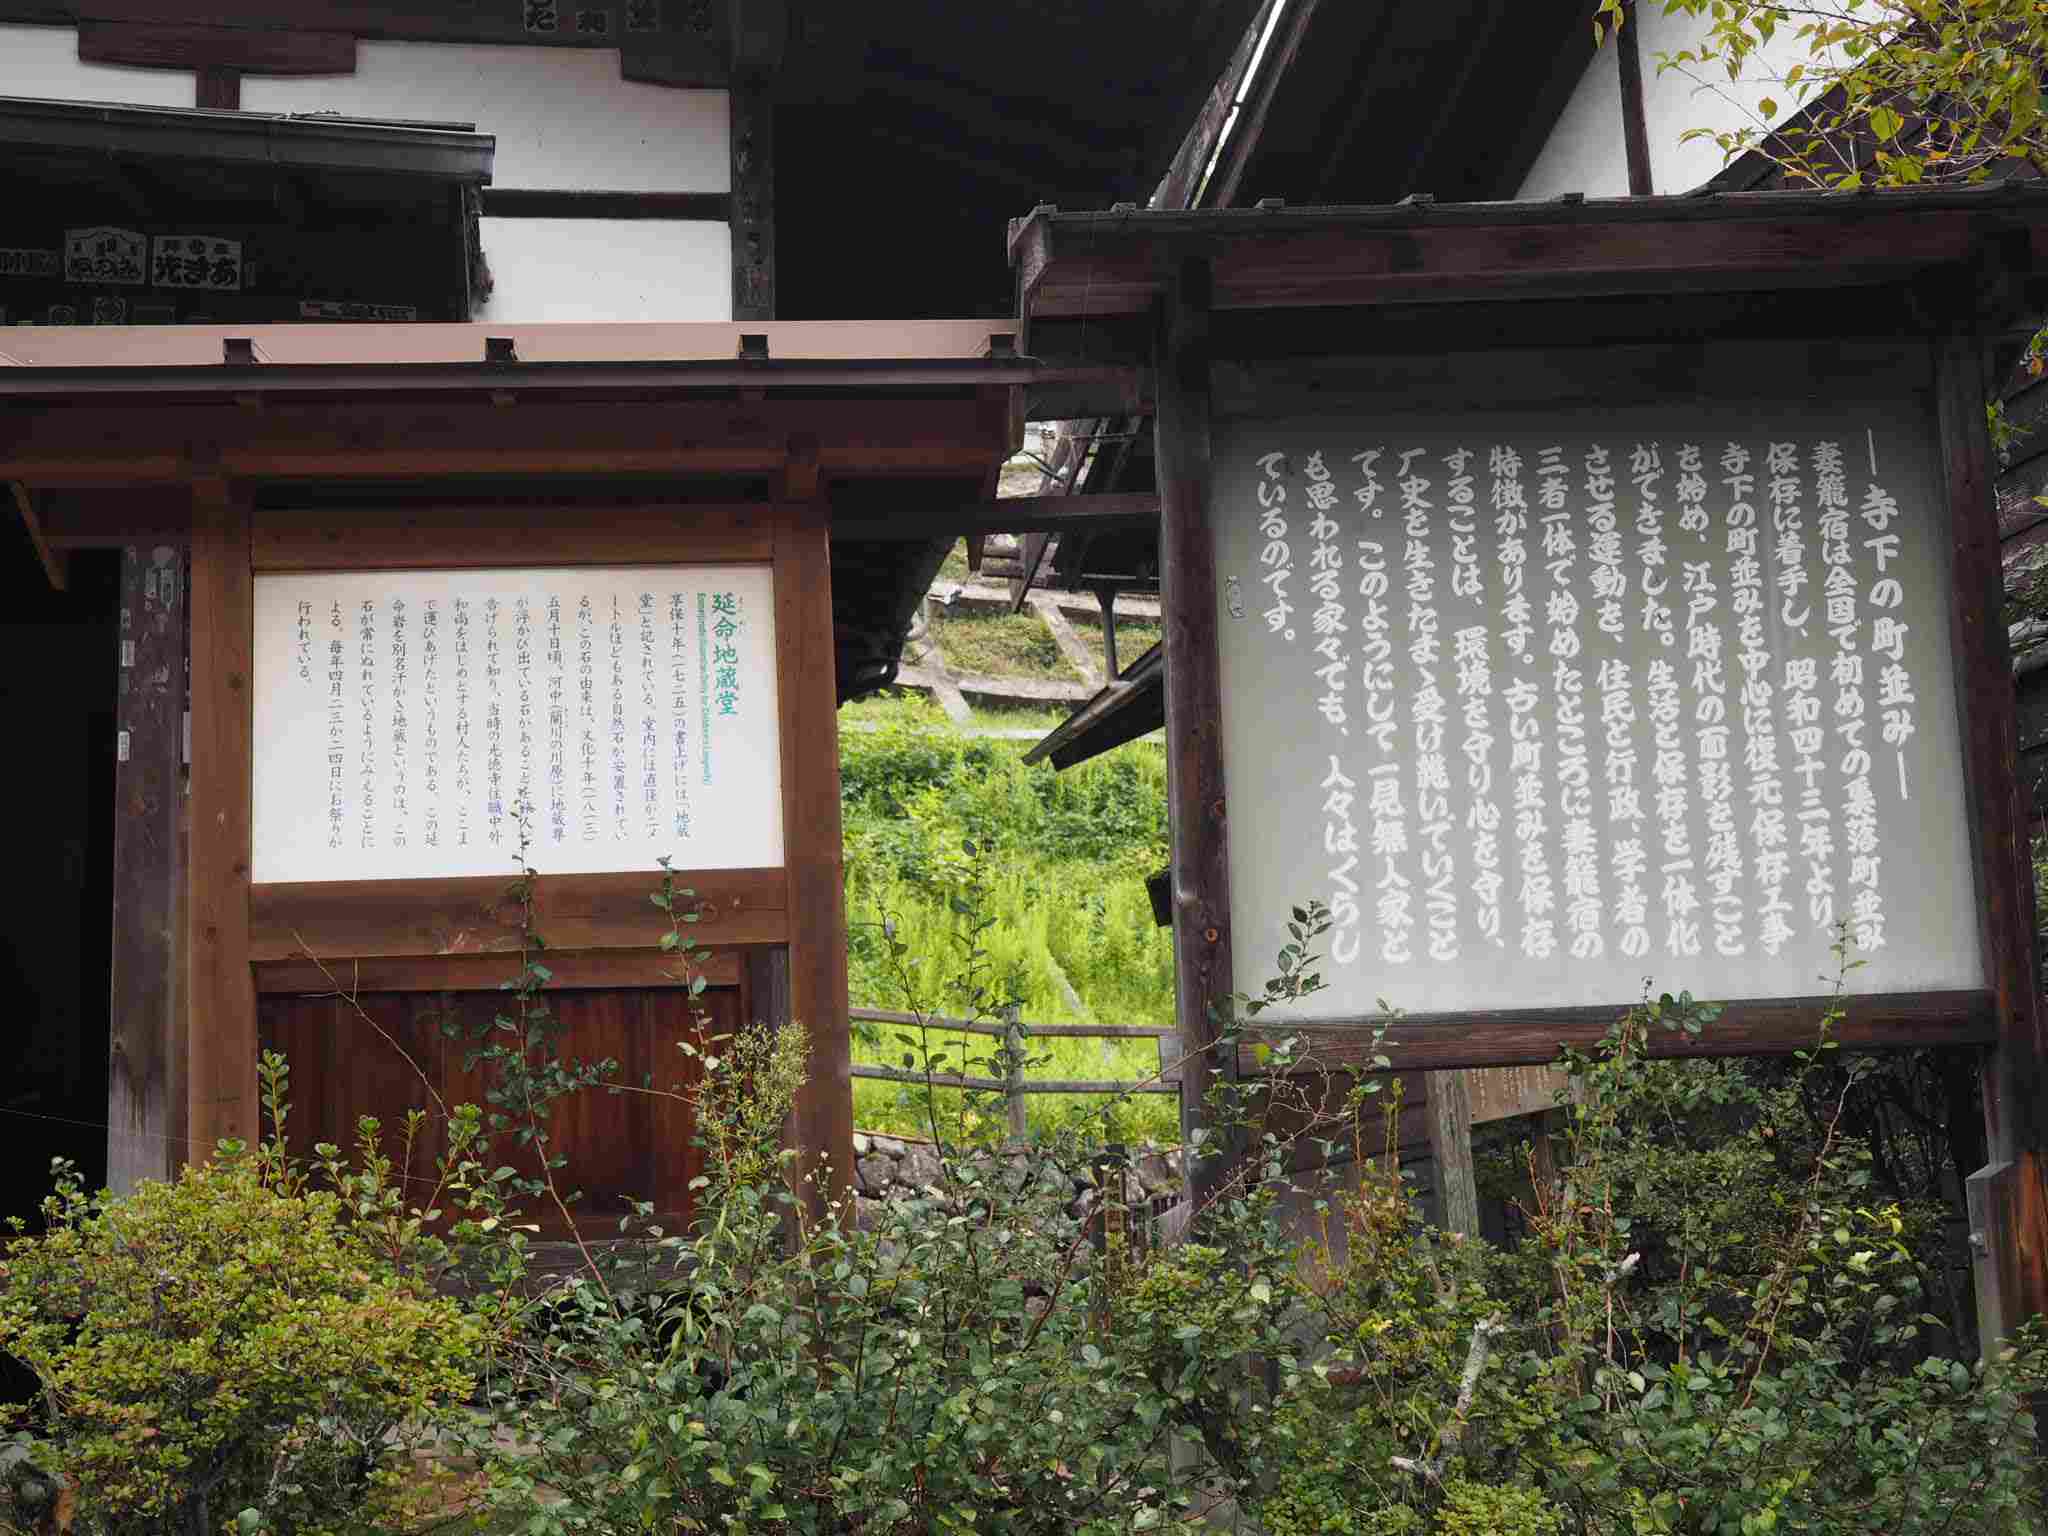 あき光
―寺下の町並み―
妻籠宿は全国で初めての集落町並み
保存に着手し、昭和四十三年より、
寺下の町並みを中心に復元保存工事
を始め、江戸時代の面影を残すこと
ができました。生活と保存を一体化
させる運動を、住民と行政、学者の
三者一体で始めたところに妻籠宿の
特徴があります。古い町並みを保存
することは、環境を守り心を守り、
厂史を生きたまゝ受け継いでいくこと
です。このようにして一見無人家と
も思われる家々でも、人々はくらし
ているのです。
延命地蔵堂
享保十年(一七二五)の書上げには「地蔵
堂」と記されている。堂内には直径が二メ
ートルほどもある自然石が安置されてい
るが、この石の由来は、文化十年(一八一三)
五月十日頃、河中(蘭川の川原)に地蔵尊
が浮かび出ている石があること
告げられて知り、当時の光徳寺住職中外
和尚をはじめとする村人たちが、ここま
で運びあげたというものである。この延
命岩を別名汗かき地蔵というのは、この
石が常にぬれているようにみえることに
よる。毎年四月二三か二四日にお祭りが
行われている。